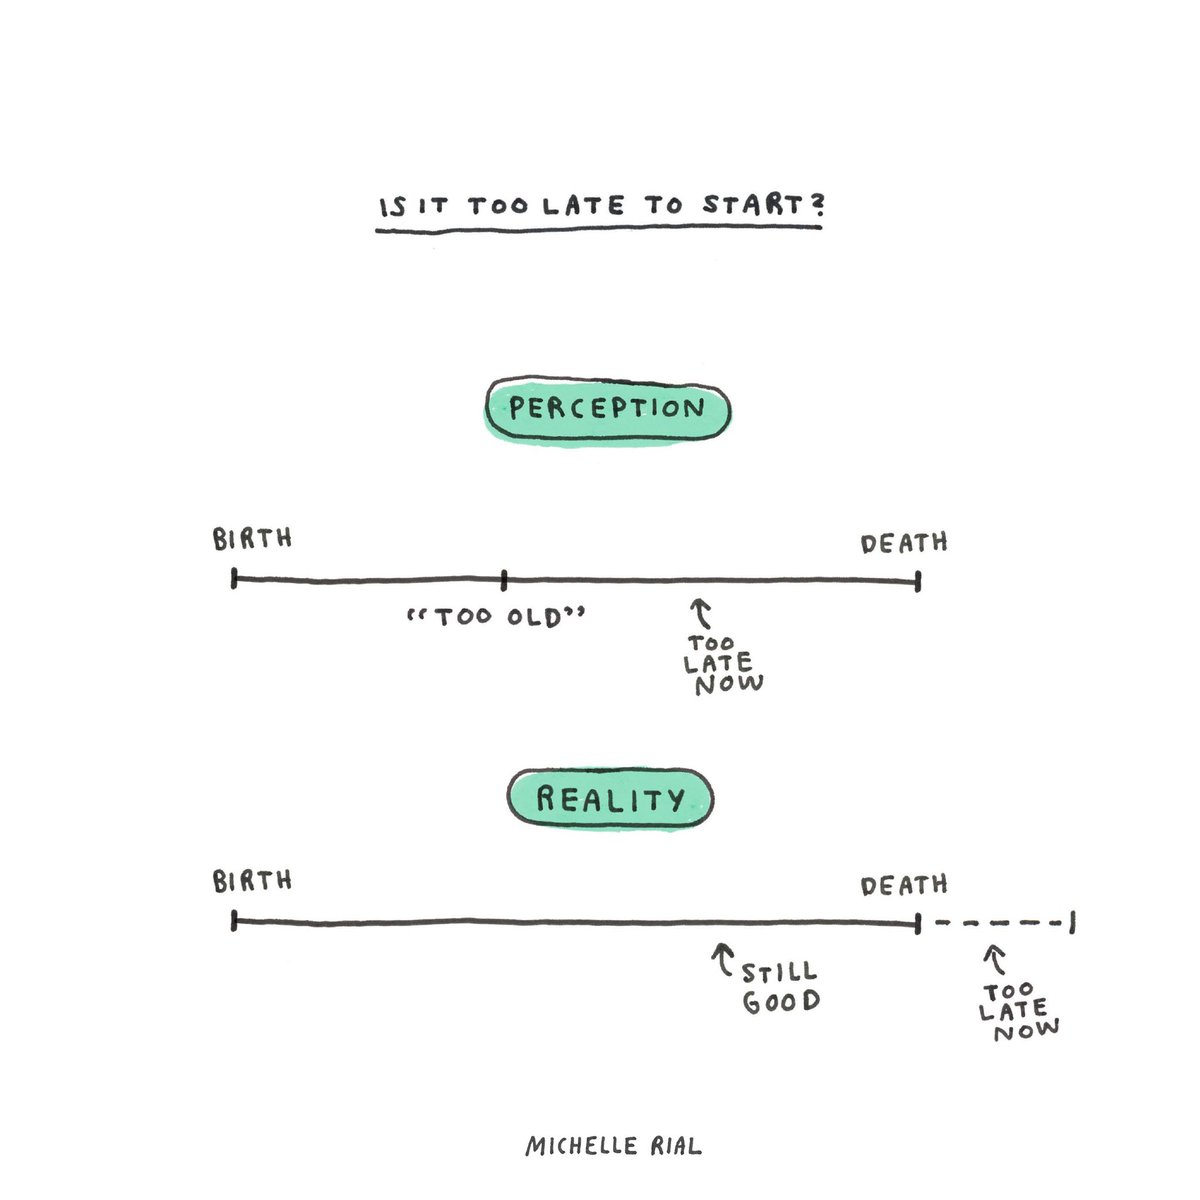 IS IT TOO LATE TO START?
PERCEPTION
BIRTH
DEATH
“TOO OLD”
TOO
LATE
NOW
REALITY
BIRTH
DEATH
STILL
GOOD
TOO
LATE
NOW
MICHELLE RIAL